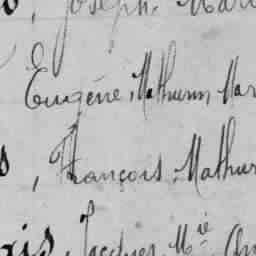 , Joseph, Mar
Eugène, Mathurin, Mar
s, François, Mathur
ais, Jacques, Mie